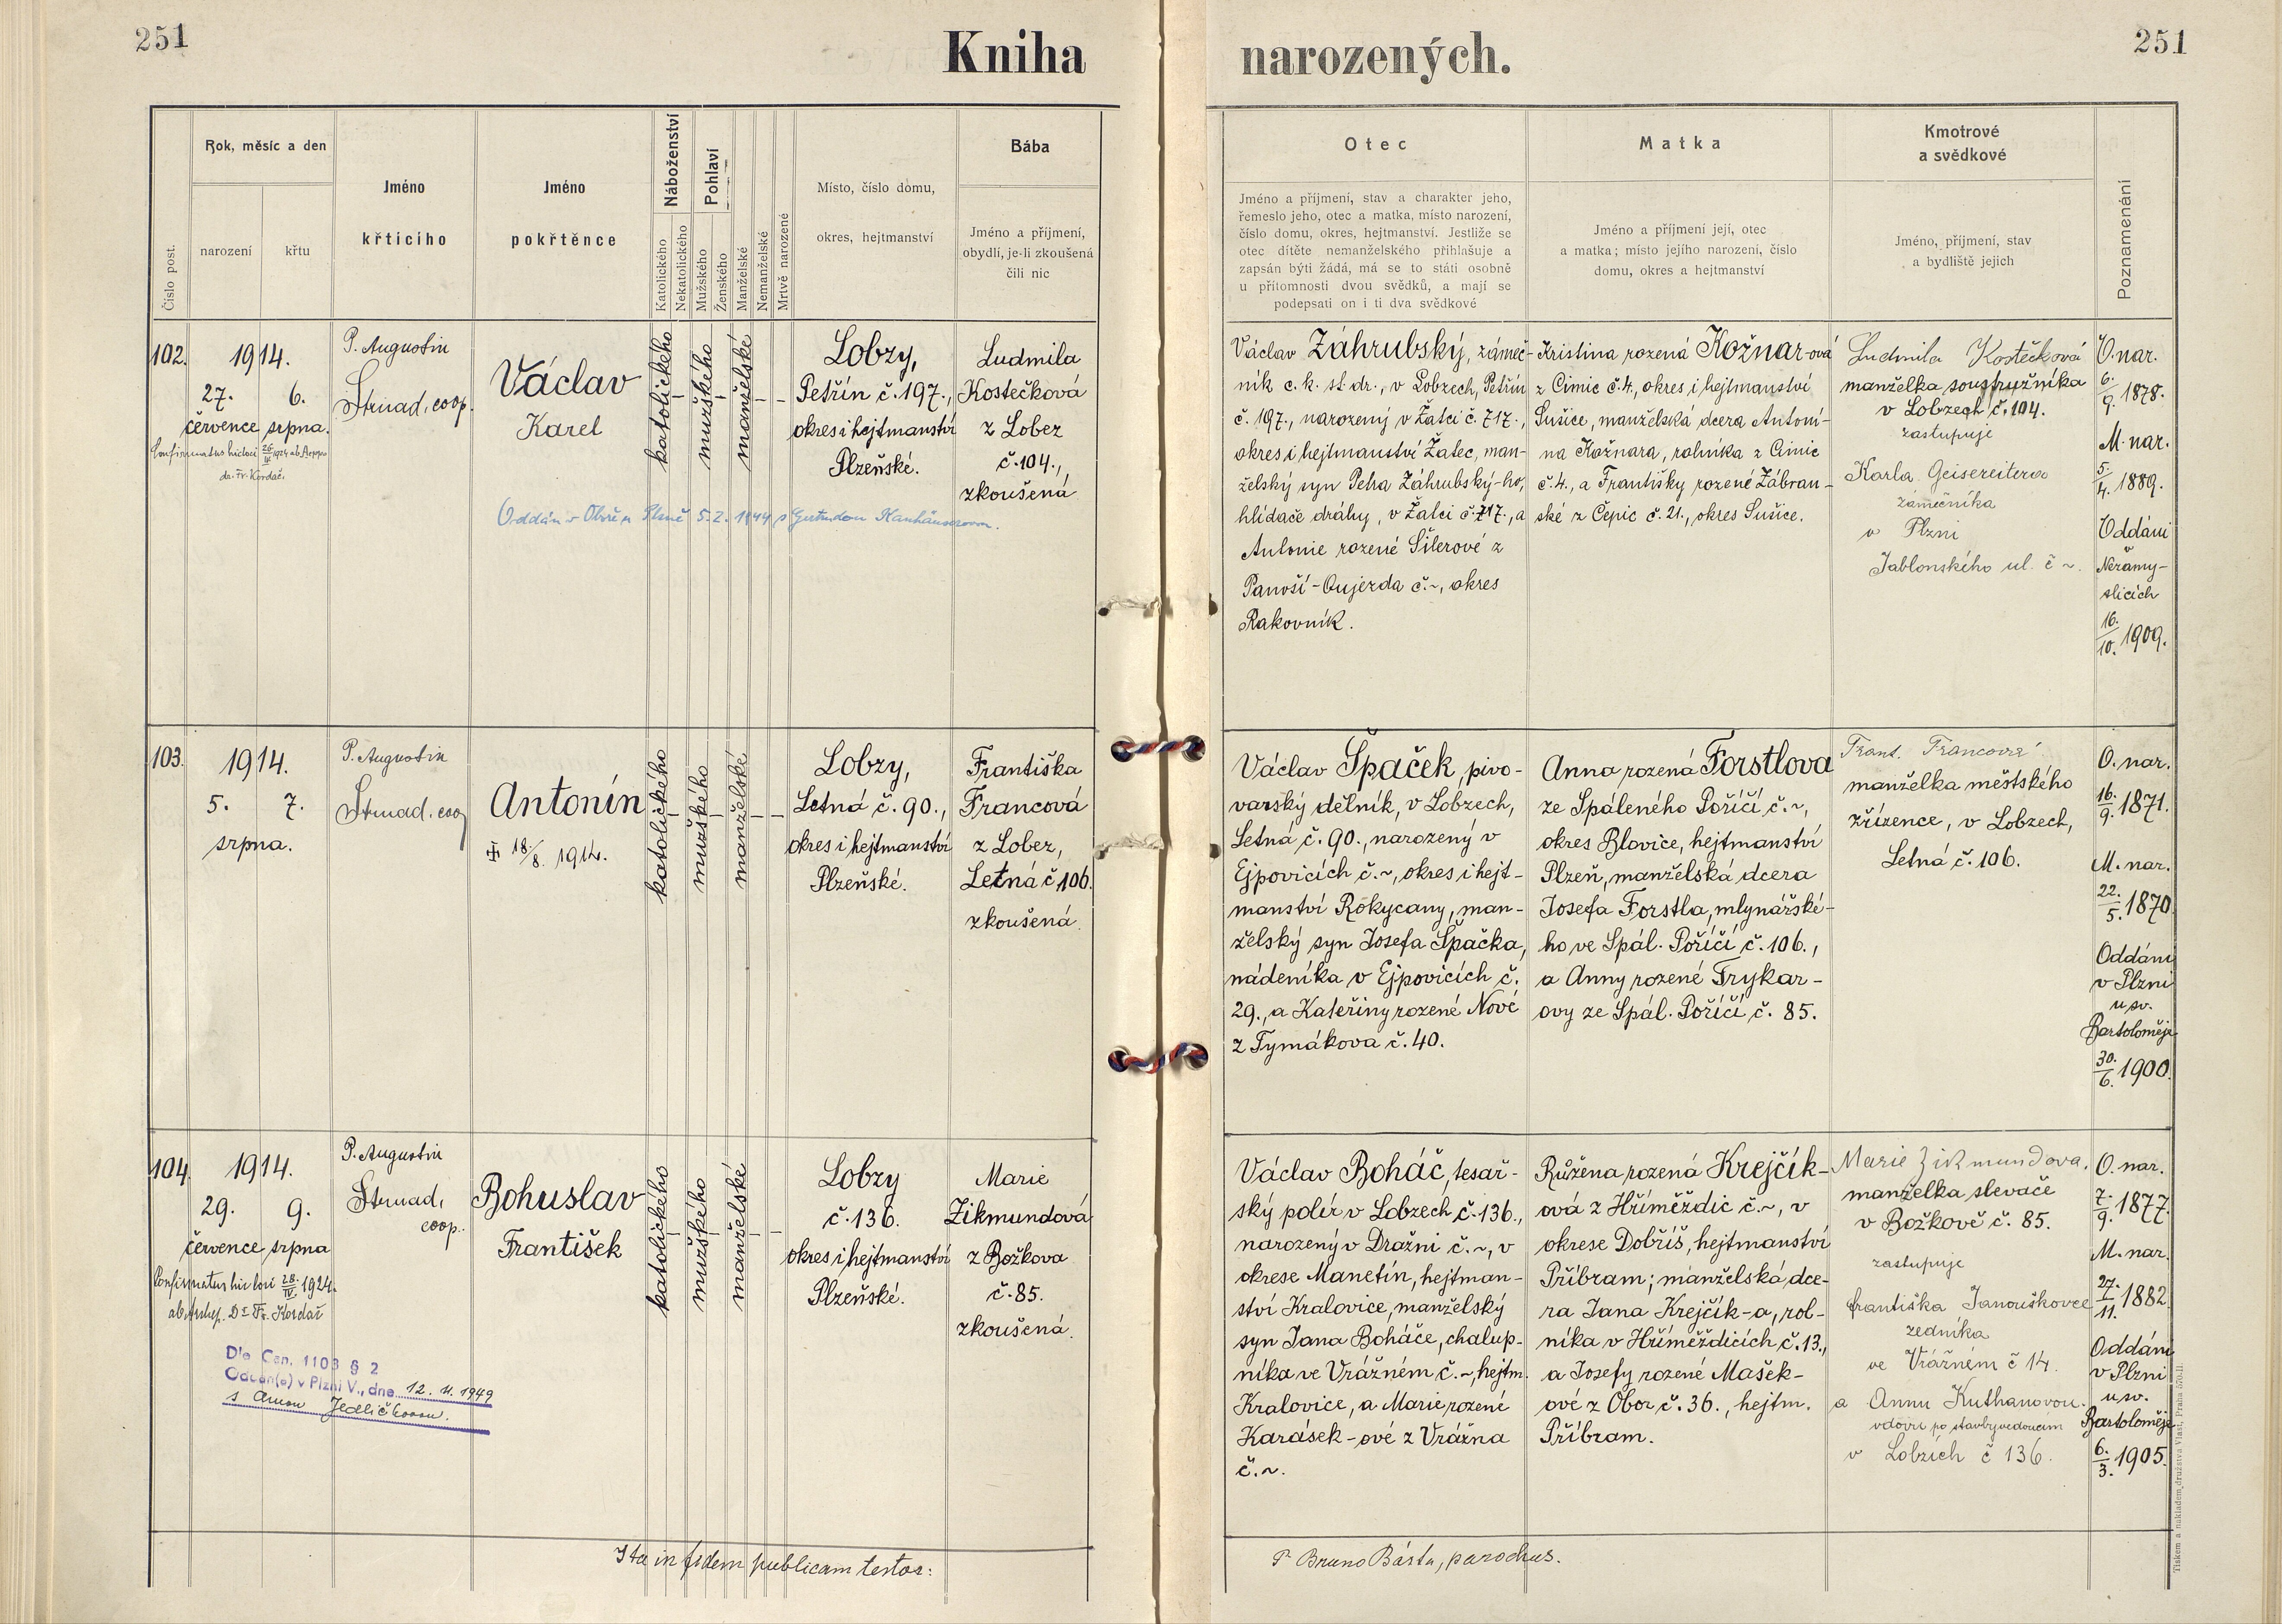 251
Kniha
narozených.
251
Číslo post.
Rok, měsíc a den
narození
křtu
Jméno
křtícího
Jméno
pokřtěnce
Náboženství
Katolického
Nekatolického
Pohlaví
Mužského
Ženského
Manželské
Nemanželské
Mrtvě narozené
Místo, číslo domu,
okres, hejtmanství
Bába
Jméno a příjmení,
obydlí, je-li zkoušená
čili nic
Otec
Jméno a příjmení, stav a charakter jeho,
řemeslo jeho, otec a matka, místo narození,
číslo domu, okres, hejtmanství. Jestliže se
otec dítěte nemanželského přihlašuje a
zapsán býti žádá, má se to státi osobně
u přítomnosti dvou svědků, a mají se
podepsati on i ti dva svědkové
Matka
Jméno a příjmení její, otec
a matka; místo jejího narození, číslo
domu, okres a hejtmanství
Kmotrové
a svědkové
Jméno, příjmení, stav
a bydliště jejich
Poznamenání
102.
1914.
27. 6.
července srpna.
Confirmatus hic loci 26/IV 1924 ab Archiep.
dr. Fr. Kordač.
P. Augustin
Strnad, coop.
Václav
Karel
katolického
mužského
manželské
Lobzy,
Petřín č. 197.,
okres i hejtmanství
Plzeňské.
Ludmila
Kostečková
z Lobez
č. 104.,
zkoušená
Oddán v Obořen Plzně 5.2. 1944 s Gertrudou
Václav Záhrubský, zámeč-
ník c. k. st. dr., v Lobzech, Petřín
č. 197., narozený v Žatci č. 717.,
okres i hejtmanství Žatec, man-
želský syn Petra Záhrubský-ho,
hlídače dráhy, v Žatci č. 717., a
Antonie rozené Šilerové z
Panoší-Oujezda č. ~, okres
Rakovník.
Kristina rozená Kožnar-ová
z Čimic č. 4., okres i hejtmanství
Sušice, manželská dcera Antoní-
na Kožnara, rolníka z Čimic
č. 4., a Františky rozené Zábran-
ské z Čepic č. 21., okres Sušice.
Ludmila Kostečková
manželka soustružníka
v Lobzech č. 104.
zastupuje
Karla Geisereitera
zámečníka
v Plzni
Jablonského ul. č ~.
O. nar.
6./9. 1878.
M. nar.
5./4. 1889.
Oddáni
Nezamy-
slicích
16./10. 1909.
103.
1914.
5. 7.
srpna.
P. Augustin
Strnad, coop
Antonín
18./8. 1914.
katolického
mužského
manželské
Lobzy,
Letná č. 90.,
okres i hejtmanství
Plzeňské.
Františka
Francová
z Lobez,
Letná č 106.
zkoušená.
Václav Špaček, pivo-
varský dělník, v Lobzech,
Letná č. 90., narozený v
Ejpovicích č. ~, okres i hejt-
manství Rokycany, man-
želský syn Josefa Špačka,
nádeníka v Ejpovicích č.
29., a Kateřiny rozené Nové
z Tymákova č. 40.
Anna rozená Forstlova
ze Spáleného Poříčí č. ~,
okres Blovice, hejtmanství
Plzeň, manželská dcera
Josefa Forstla, mlynářské-
ho ve Spál. Poříčí č. 106.,
a Anny rozené Frykar-
ovy ze Spál. Poříčí, č. 85.
Frant. Francová
manželka městského
zřízence, v Lobzech,
Letná č. 106.
O. nar.
16./9. 1871.
M. nar.
22./5. 1870.
Oddáni
v Plzni
u sv.
Bartoloměje
30./6. 1900.
104.
1914.
29. 9.
července srpna
Confirmatus hic loci 28/IV 1924.
ab Archiep. Dr Fr. Kordač
P. Augustin
Strnad,
coop.
Bohuslav
František
katolického
mužského
manželské
Lobzy
č. 136.
okres i hejtmanství
Plzeňské.
Marie
Zikmundová
z Božkova
č. 85.
zkoušená.
Dle Can. 1103 § 2
Oddán(a) v Plzni V., dne 12. 11. 1949
s Annou Jedličkovou.
Václav Boháč, tesař-
ský polír v Lobzech č. 136.,
narozený v Dražni č. ~, v
okrese Manetín, hejtman-
ství Kralovice, manželský
syn Jana Boháče, chalup-
níka ve Vrážném č. ~, hejtm.
Kralovice, a Marie rozené
Karásek-ové z Vrážna
č. ~.
Růžena rozená Krejčík-
ová z Hříměždic č. ~, v
okrese Dobříš, hejtmanství
Příbram; manželská dce-
ra Jana Krejčík-a, rol-
níka v Hříměždicích č. 13.,
a Josefy rozené Mašek-
ové z Obor č. 36., hejtm.
Příbram.
Marie Zikmundova,
manželka slevače
v Božkově č. 85.
zastupuje
františka Janouškovce
zedníka
ve Vrážném č 14.
a Annu Kuthanovou.
vdovu po stavbyvedoucím
v Lobzích č 136.
O. nar.
7./9. 1877.
M. nar.
27./11. 1882.
Oddáni
v Plzni
u sv.
Bartoloměje
6./3. 1905.
Ita in fidem publicam testor:
P. Bruno Bárta, parochus.
Tiskem a nákladem družstva Vlasť, Praha 570-II.